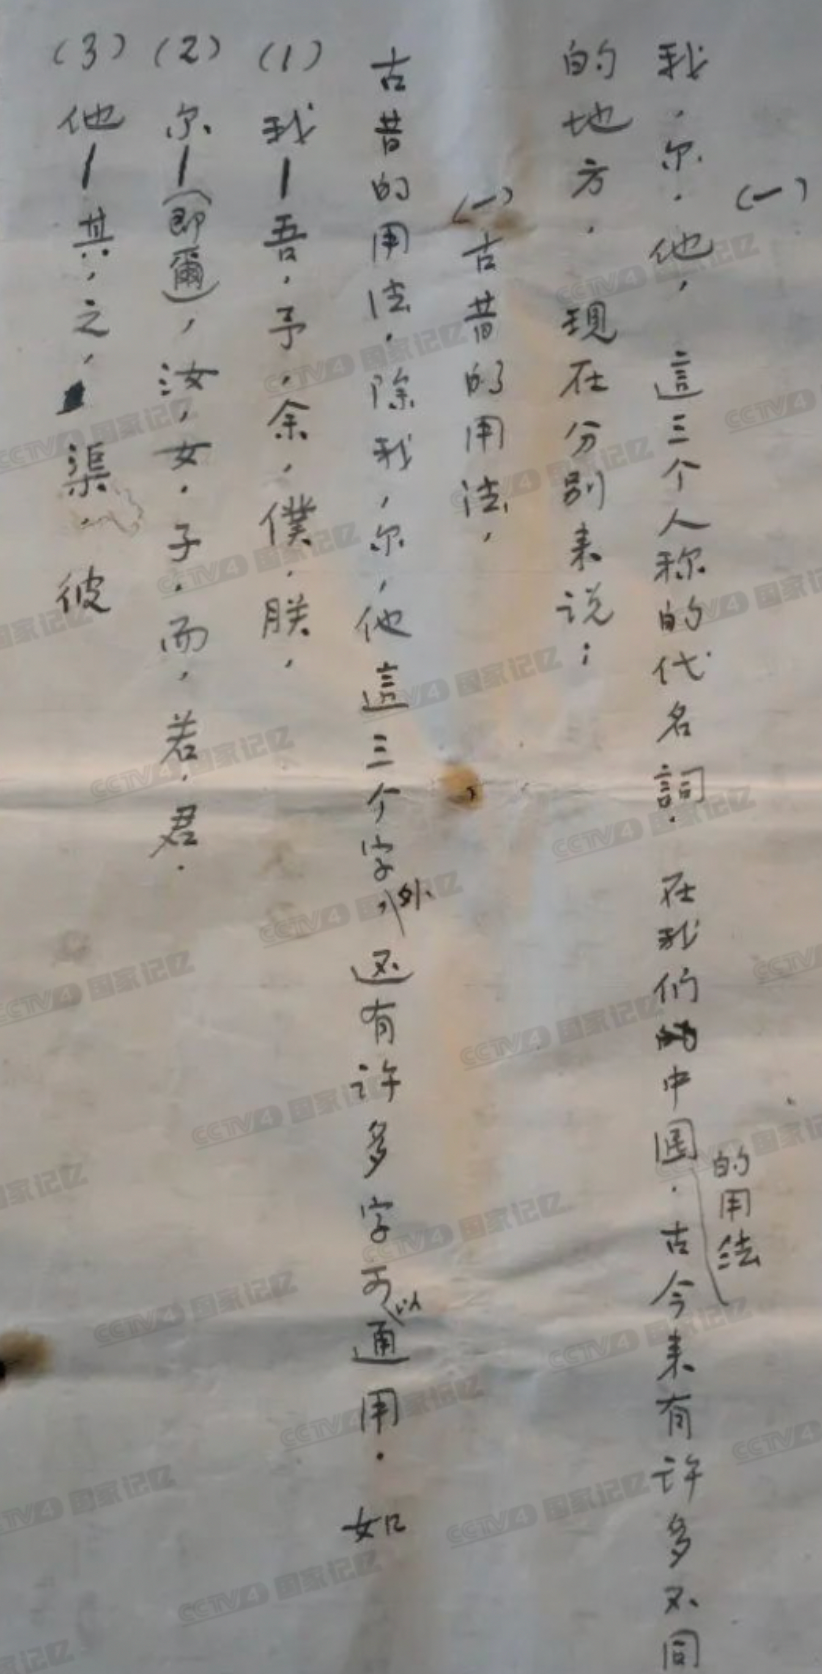 (一)
我，尔，他，這三个人称的代名詞．在我们中国．古今来的用法有许多不同
的地方．现在分别来说；
(一)古昔的用法，
古昔的用法，除我，尔，他這三个字外，还有许多字可以通用．如
(1)我—吾，予，余，僕，朕，
(2)尔—(即爾)，汝，女，子，而，若，君．
(3)他—其，之，渠，彼
CCTV4 国家记忆